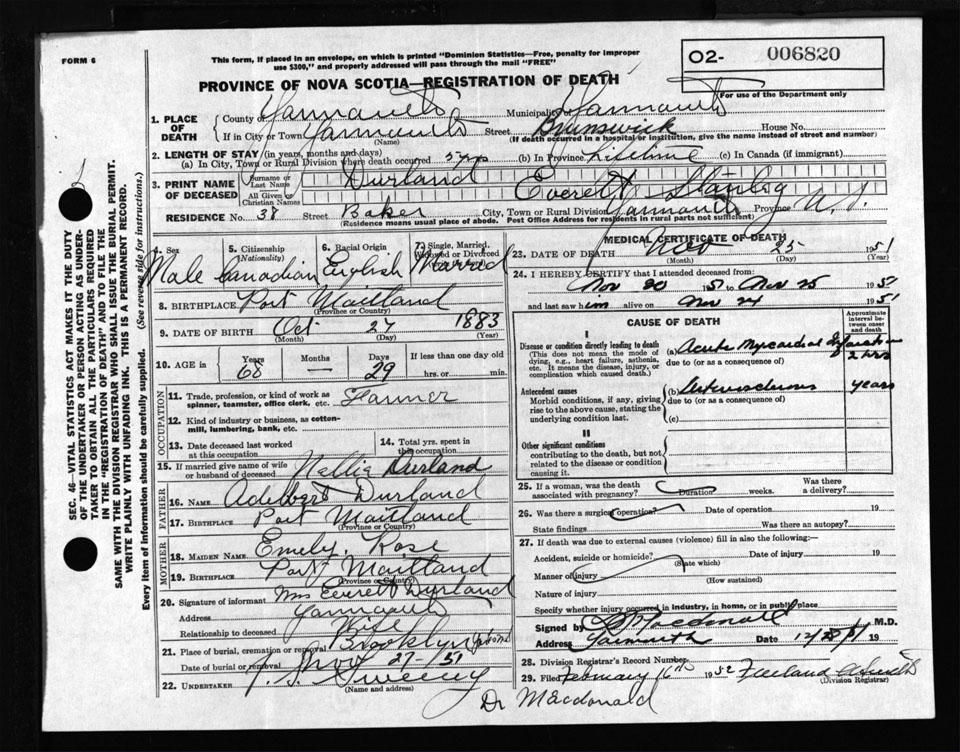 FORM 6
This form, if placed in an envelope, on which is printed "Dominion Statistics—Free, penalty for improper
use $300," and properly addressed will pass through the mail "FREE"
O2- 006820
For use of the Department only
PROVINCE OF NOVA SCOTIA—REGISTRATION OF DEATH
1. PLACE OF DEATH County of Yarmouth Municipality of Yarmouth
If in City or Town Yarmouth Street Brunswick House No.
(Name) (If death occurred in a hospital or institution, give the name instead of street and number)
2. LENGTH OF STAY (in years, months and days)
(a) In City, Town or Rural Division where death occurred 5 yrs (b) In Province Lifetime (c) In Canada (if immigrant)
3. PRINT NAME OF DECEASED Surname or Last Name Durland
All Given or Christian Names Everett Stanley
RESIDENCE No. 38 Street Baker City, Town or Rural Division Yarmouth Province N.S.
(Residence means usual place of abode. Post Office Address for residents in rural parts not sufficient)
4. Sex 5. Citizenship (Nationality) 6. Racial Origin 7. Single, Married, Widowed or Divorced
Male Canadian English Married
8. BIRTHPLACE Port Maitland
(Province or Country)
9. DATE OF BIRTH Oct 27 1883
(Month) (Day) (Year)
10. AGE in Years 68 Months — Days 29 If less than one day old
hrs. or min.
OCCUPATION
11. Trade, profession, or kind of work as
spinner, teamster, office clerk, etc. Farmer
12. Kind of industry or business, as cotton-
mill, lumbering, bank, etc.
13. Date deceased last worked
at this occupation
14. Total yrs. spent in
this occupation
15. If married give name of wife
or husband of deceased Durland
FATHER
16. NAME Adelbert Durland
17. BIRTHPLACE Port Maitland
(Province or Country)
MOTHER
18. MAIDEN NAME Emely Rose
19. BIRTHPLACE Port Maitland
(Province or Country)
20. Signature of informant Mrs Everett Durland
Address Yarmouth
Relationship to deceased Wife
21. Place of burial, cremation or removal Brooklyn
Date of burial or removal Nov 27/51
22. UNDERTAKER Sweeny
(Name and address)
MEDICAL CERTIFICATE OF DEATH
23. DATE OF DEATH Nov 25 1951
(Month) (Day)
24. I HEREBY CERTIFY that I attended deceased from
Nov 20 1951 to Nov 25 1951
and last saw him alive on Nov 24 1951
CAUSE OF DEATH
Approximate interval between onset and death
I
Disease or condition directly leading to death
(This does not mean the mode of
dying, e.g., heart failure, asthenia,
etc. It means the disease, injury, or
complication which caused death.)
(a) Acute Myocardial Infarction 2 hrs
due to (or as a consequence of)
Antecedent causes
Morbid conditions, if any, giving
rise to the above cause, stating the
underlying condition last.
(b) years
due to (or as a consequence of)
(c)
II
Other significant conditions
contributing to the death, but not
related to the disease or condition
causing it.
25. If a woman, was the death
associated with pregnancy? Duration weeks. Was there
a delivery?
26. Was there a surgical operation? Date of operation 19
State findings Was there an autopsy?
27. If death was due to external causes (violence) fill in also the following:—
Accident, suicide or homicide? Date of injury 19
(State which)
Manner of injury
(How sustained)
Nature of injury
Specify whether injury occurred in industry, in home, or in public place
Signed by Macdonald M.D.
Address Yarmouth Date 19
28. Division Registrar's Record Number
29. Filed February 16th 1952
(Division Registrar)
Dr MacDonald
SEC. 46—VITAL STATISTICS ACT MAKES IT THE DUTY
OF THE UNDERTAKER OR PERSON ACTING AS UNDER-
TAKER TO OBTAIN ALL THE PARTICULARS REQUIRED
IN THE "REGISTRATION OF DEATH" AND TO FILE THE
SAME WITH THE DIVISION REGISTRAR WHO SHALL ISSUE THE BURIAL PERMIT.
WRITE PLAINLY WITH UNFADING INK. THIS IS A PERMANENT RECORD.
Every item of information should be carefully supplied. (See reverse side for instructions.)